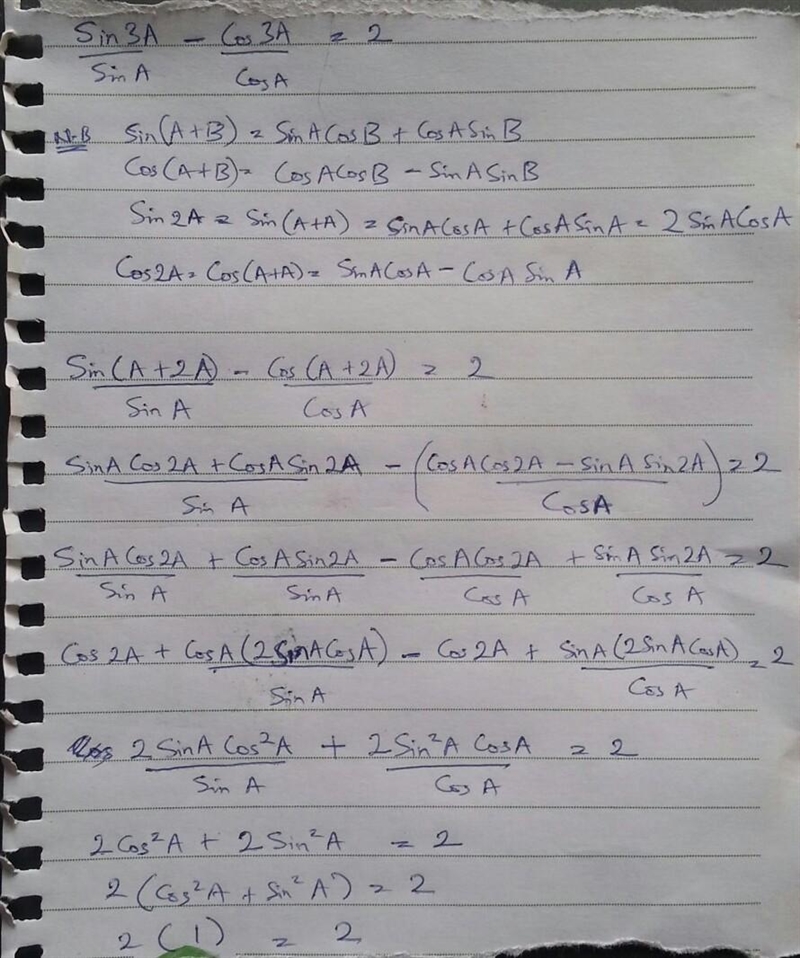 Sin 3A / Sin A − Cos 3A / Cos A = 2
N.B Sin(A+B) = Sin A Cos B + Cos A Sin B
Cos(A+B) = Cos A Cos B − Sin A Sin B
Sin 2A = Sin (A+A) = Sin A Cos A + Cos A Sin A = 2 Sin A Cos A
Cos 2A = Cos (A+A) = Sin A Cos A − Cos A Sin A
Sin (A+2A) / Sin A − Cos (A+2A) / Cos A = 2
Sin A Cos 2A + Cos A Sin 2A / Sin A − (Cos A Cos 2A − Sin A Sin 2A / Cos A) = 2
Sin A Cos 2A / Sin A + Cos A Sin 2A / Sin A − Cos A Cos 2A / Cos A + Sin A Sin 2A / Cos A = 2
Cos 2A + Cos A (2 Sin A Cos A) / Sin A − Cos 2A + Sin A (2 Sin A Cos A) / Cos A = 2
2 Sin A Cos²A / Sin A + 2 Sin²A Cos A / Cos A = 2
2 Cos²A + 2 Sin²A = 2
2 (Cos²A + Sin²A) = 2
2 (1) = 2